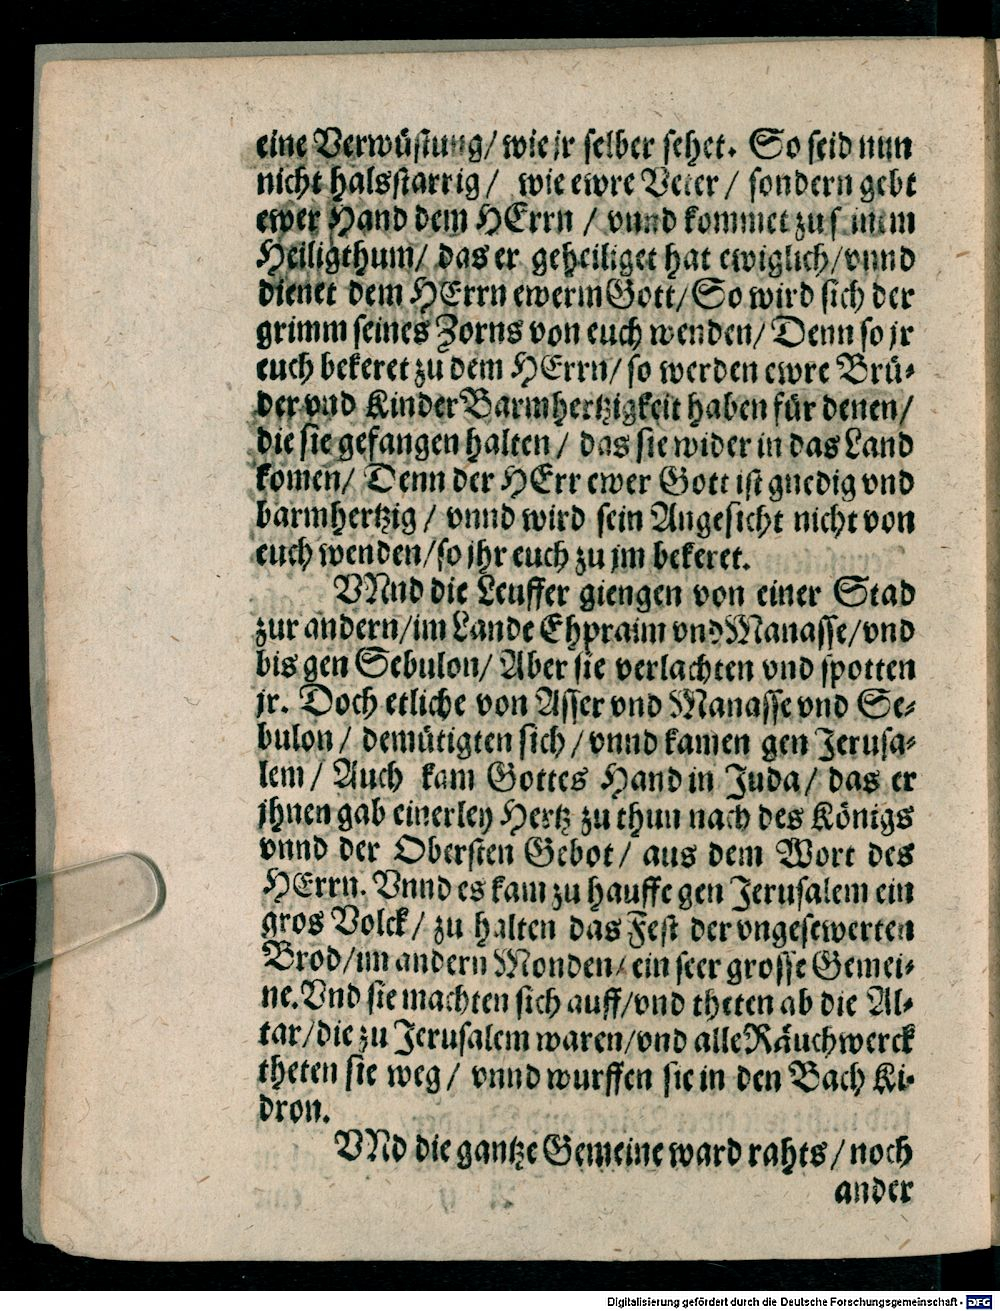 eine Verwüstung/ wie jr selber sehet. So seid nun
nicht halsstarrig/ wie ewre Veter/ sondern gebt
ewer Hand dem HErrn/ vnnd kommet zu seinem
Heiligthum/ das er geheiliget hat ewiglich/ vnnd
dienet dem HErrn ewerm Gott/ So wird sich der
grimm seines Zorns von euch wenden/ Denn so jr
euch bekeret zu dem HErrn/ so werden ewre Brü-
der vnd Kinder Barmhertzigkeit haben für denen/
die sie gefangen halten/ das sie wider in das Land
komen/ Denn der HErr ewer Gott ist gnedig vnd
barmhertzig/ vnnd wird sein Angesicht nicht von
euch wenden/ so jhr euch zu jm bekeret.
VNnd die Leuffer giengen von einer Stad
zur andern/ im Lande Ehpraim vnd Manasse/ vnd
bis gen Sebulon/ Aber sie verlachten vnd spotten
jr. Doch etliche von Asser vnd Manasse vnd Se-
bulon/ demütigten sich/ vnnd kamen gen Jerusa-
lem/ Auch kam Gottes Hand in Juda/ das er
jhnen gab einerley Hertz zu thun nach des Königs
vnnd der Obersten Gebot/ aus dem Wort des
HErrn. Vnnd es kam zu hauffe gen Jerusalem ein
gros Volck/ zu halten das Fest der vngesewerten
Brod/ im andern Monden/ ein seer grosse Gemei-
ne. Vnd sie machten sich auff/ vnd theten ab die Al-
tar/ die zu Jerusalem waren/ vnd alle Räuchwerck
theten sie weg/ vnnd wurffen sie in den Bach Ki-
dron.
VNd die gantze Gemeine ward rahts/ noch
ander
Digitalisierung gefördert durch die Deutsche Forschungsgemeinschaft - DFG